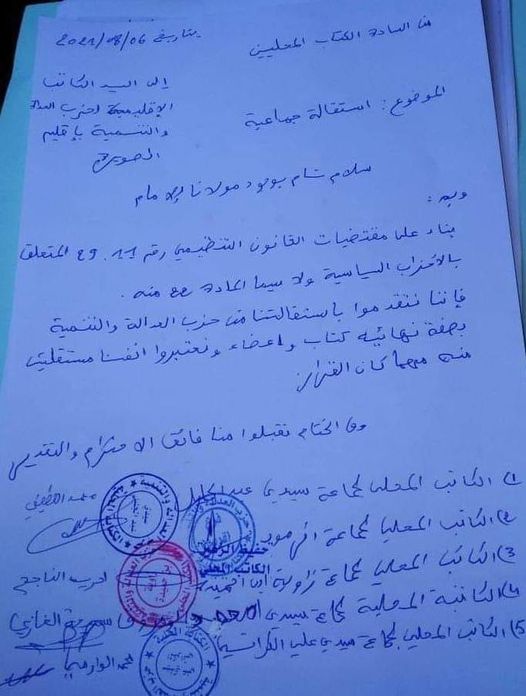 من السادة الكتاب المحليين
بتاريخ 2021/08/06
إلى السيد الكاتب
الإقليمي لحزب العدالة
والتنمية بإقليم
الصويرة
الموضوع: استقالة جماعية
سلام تام بوجود مولانا الإمام
وبعد:
بناء على مقتضيات القانون التنظيمي رقم 29.11 المتعلق
بالأحزاب السياسية ولا سيما المادة 22 منه.
فإننا نتقدموا باستقالتنا من حزب العدالة والتنمية
بصفة نهائية كتاب وأعضاء ونعتبروا أنفسنا مستقلين
منه مهما كان القرار
وفي الختام تقبلوا منا فائق الاحترام والتقدير
1) الكاتب المحلي لجماعة سيدي عبد الجليل محمد
2) الكاتب المحلي لجماعة
3) الكاتب المحلي لجماعة زاوية ابن احميدة الناجح
4) الكاتبة المحلية لجماعة سيدي الغازي
5) الكاتب المحلي لجماعة سيدي علي الكراتي محمد
الكاتب المحلي